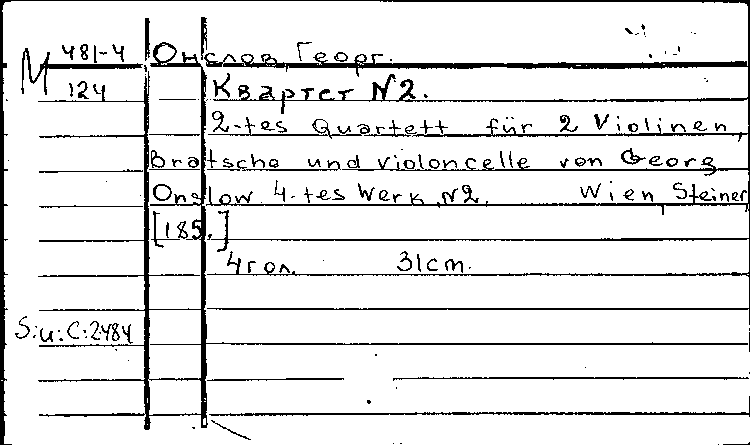 М 481-4 Онслов, Георг.
124 Квартет №2.
2-tes Quartett für 2 Violinen,
Bratsche und violoncelle von Georg
Onslow 4-tes Werk, №2. Wien, Steiner
[185.]
4 гол. 31cm.
S:u:C:2484